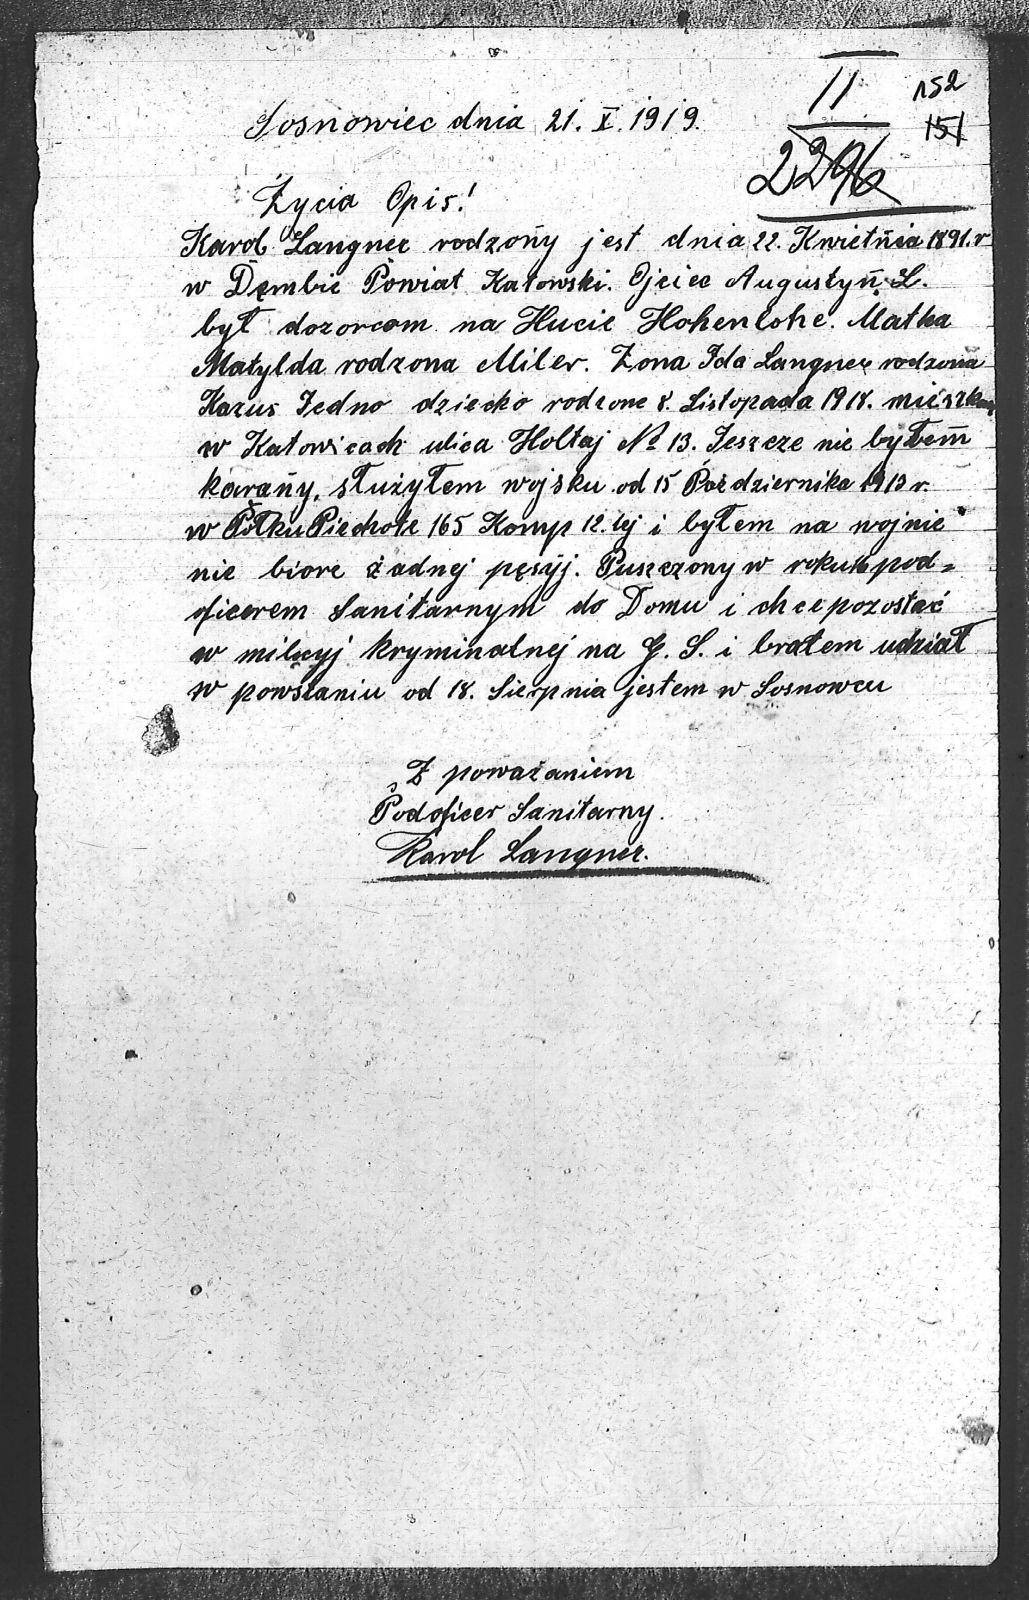 11
152
151
2296
Sosnowiec dnia 21. X. 1919.
Życia Opis!
Karol Langner rodzony jest dnia 22. Kwietnia 1891. r
w Dembie Powiat Katowski. Ojciec Augustyn L.
był dozorcom na Hucie Hohenlohe. Matka
Matylda rodzona Miler. Żona Ida Langner rodzona
Kazus Jedno dziecko rodzone 8. Listopada 1918.
w Katowicach ulica Holtaj No 13. Jeszcze nie byłem
karany, służyłem wojsku od 15 Października 1913 r.
w Pólku Piechote 165 Komp 12. tej i byłem na wojnie
nie biore żadnej pęsyj. Puszczony w roku 16 pod=
oficerem Sanitarnym do Domu i chce pozostać
w milicyj kryminalnej na G. S. i brałem udział
w powstaniu od 18. Sierpnia jestem w Sosnowcu
Z poważaniem
Podoficer Sanitarny.
Karol Langner.